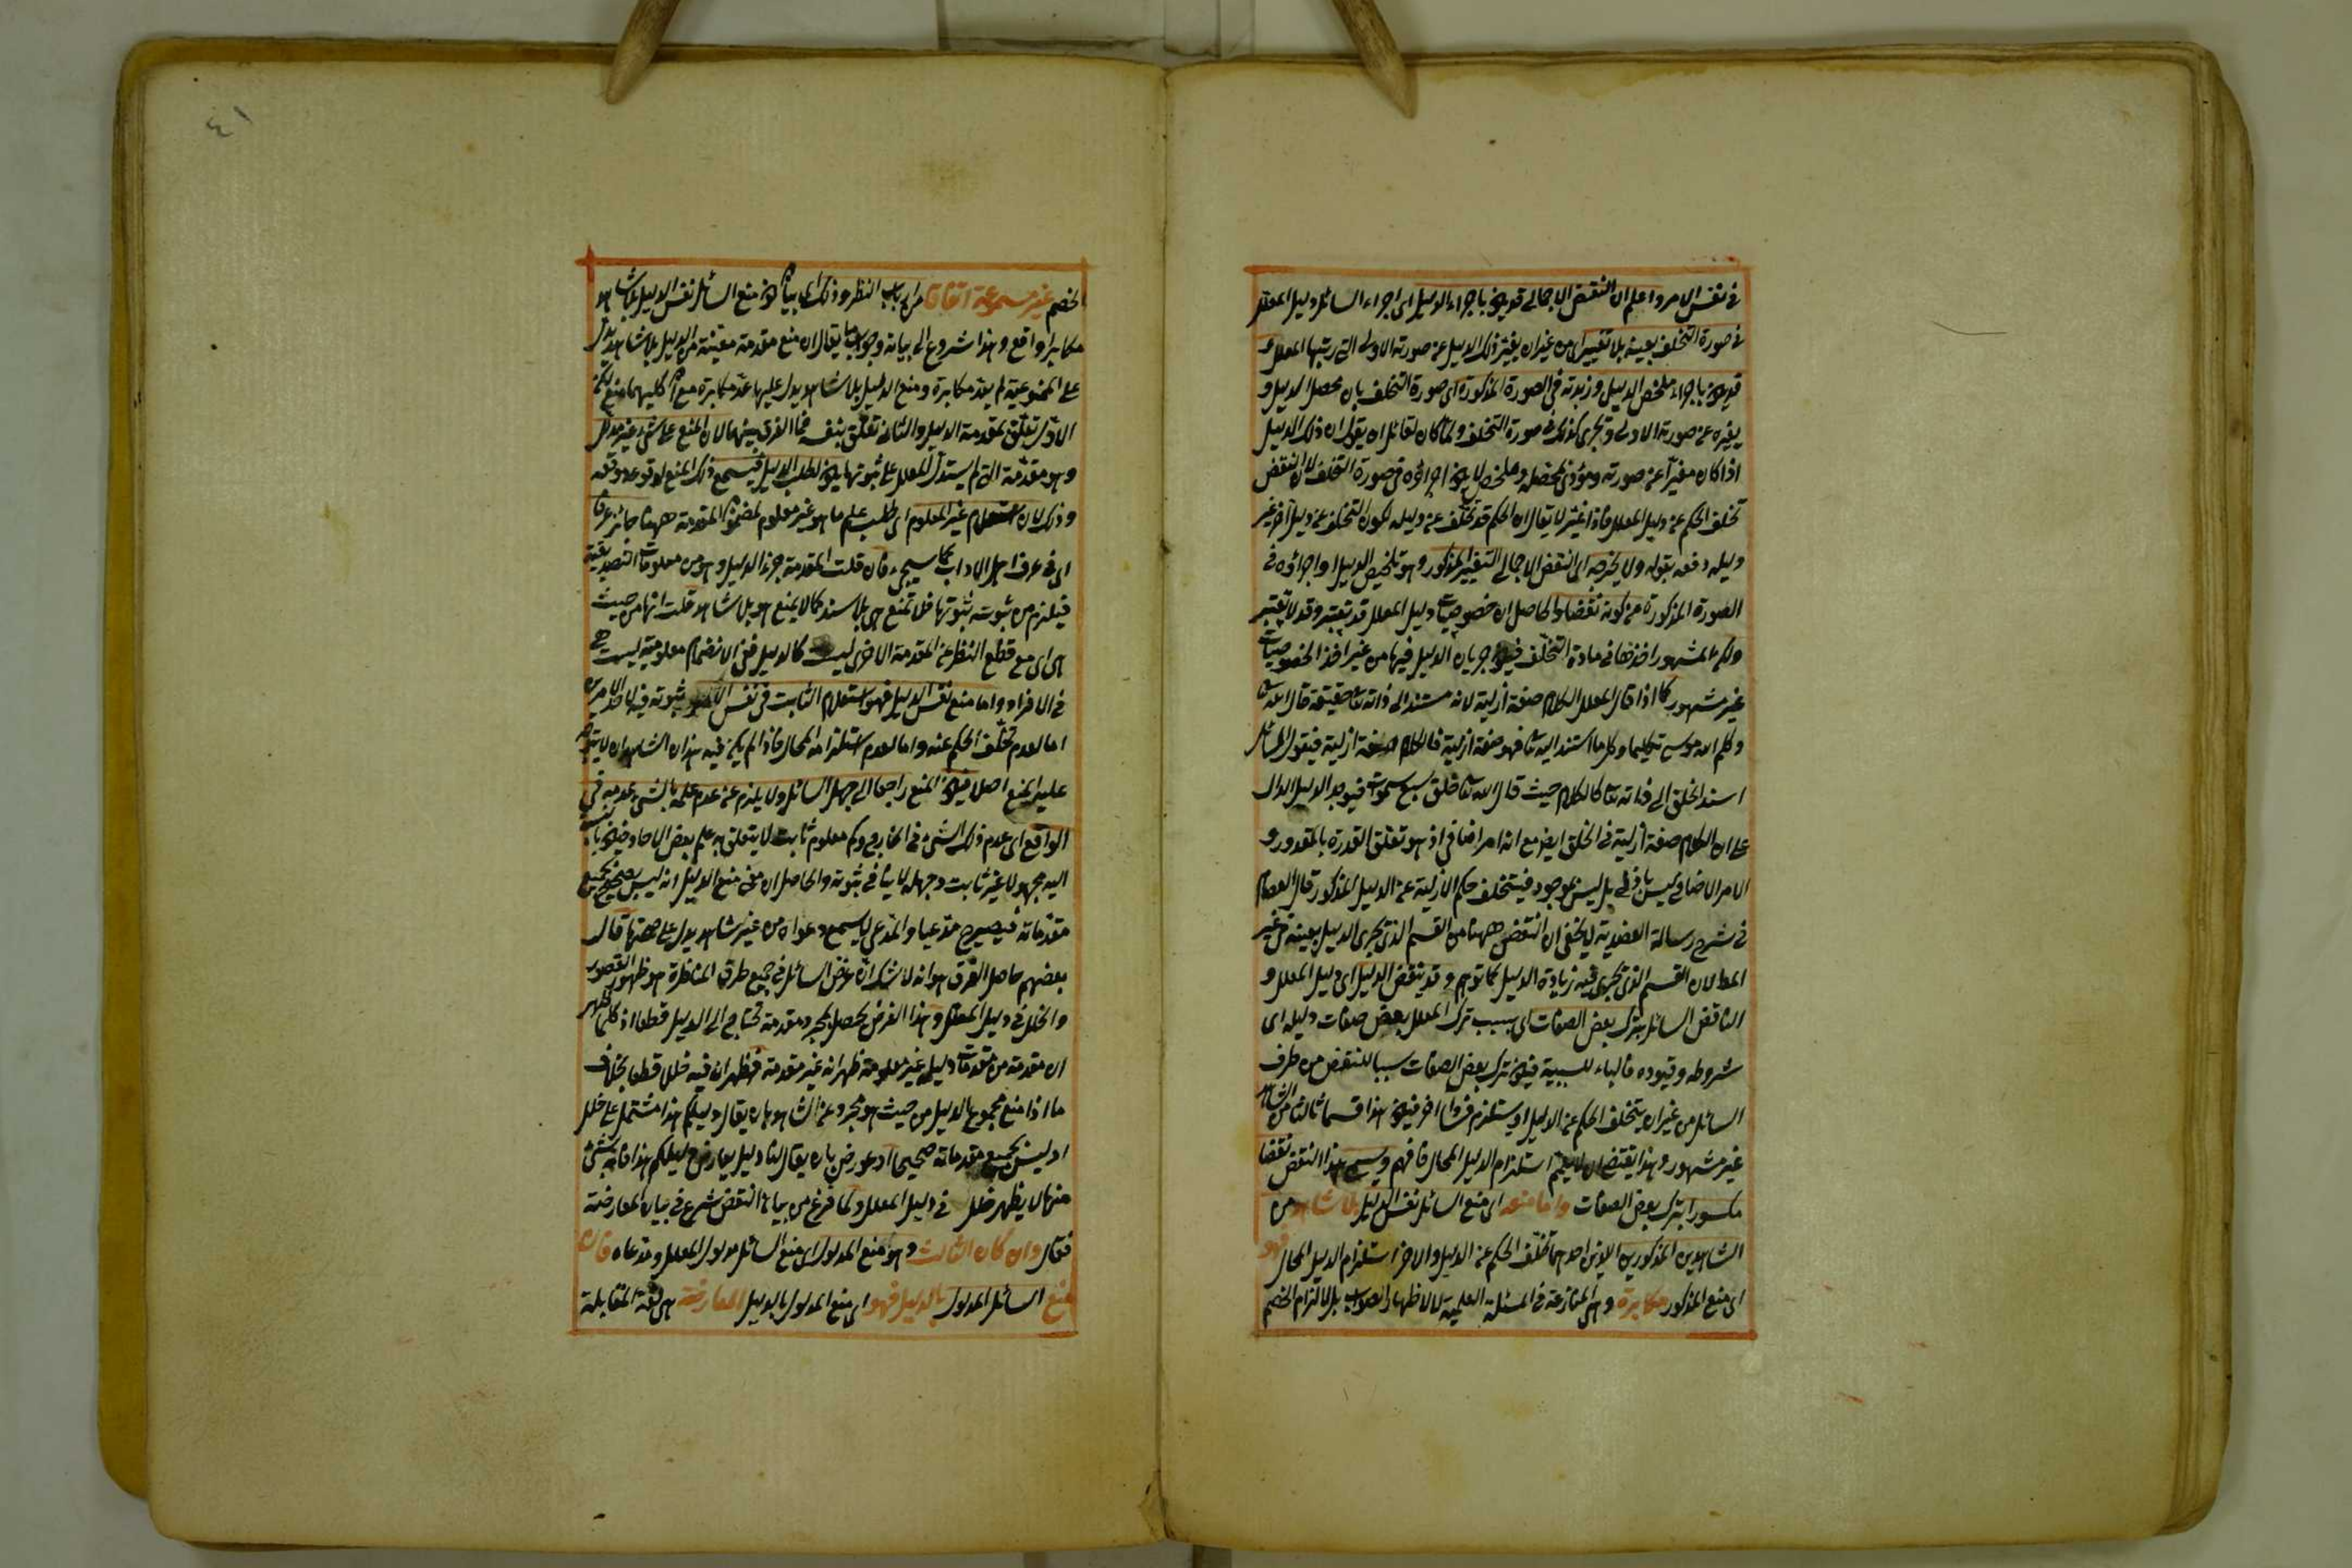 في نفس الامر واعلم ان النقض الاجمالي قد يكون باجراء الدليل اى اجراء السائل دليل المعلل
في صورة التخلف بعينه بلا تغيير اى من غير ان يغير ذلك الدليل عن صورته الاولى التي رتبها المعلل و
قد يكون باجراء ملخص الدليل وزبدته في الصورة المذكورة اى صورة التخلف بان يحصل الدليل و
يغيره عن صورته الاولى ويجرى كذلك في صورة التخلف ولما كان لقائل ان يقول ان ذلك الدليل
اذا كان مغيرا عن صورته ومؤدى بمحصله وملخصه لا يكون اجراؤه في صورة التخلف لان النقض
تخلف الحكم عن دليل المعلل فاذا غير لا يقال ان الحكم قد تخلف عن دليله لكون التخلف عن دليل آخر غير
دليله دفعه بقوله ولا يخرجه اى النقض الاجمالي التغيير المذكور وهو تلخيص الدليل واجراؤه في
الصورة المذكورة عن كونه نقضا والحاصل ان خصوصيات دليل المعلل قد يعتبر وقد لا يعتبر
ولكن المشهور اخذها في مادة التخلف فيكون جريان الدليل فيها من غير اخذ الخصوصيات
غير مشهور كما اذا قال المعلل الكلام صفة ازلية لانه مستند الى ذاته تعا حقيقة قال الله تعا
وكلم الله موسى تكليما وكل ما استند اليه تعا فهو صفة ازلية فالكلام صفة ازلية فيقول السائل
اسند الخلق الى ذاته تعا كالكلام حيث قال الله تعا خلق سبع سموات فيوجد الدليل الدال
على ان الكلام صفة ازلية في الخلق ايضا مع انه امر اضافي اذ هو تعلق القدرة بالمقدور و
الامر الاضافي ليس بازلي بل ليس بموجود فيتخلف حكم الازلية عن الدليل المذكور قال العصام
في شرح رسالة العضدية لا يخفى ان النقض ههنا من القسم الذى يجرى الدليل بعينه من غير
المط لان القسم الذى يجرى فيه زيادة الدليل كما توهم وقد ينقض الدليل اى دليل المعلل و
الناقض السائل بترك بعض الصفات اى بسبب ترك المعلل بعض صفات دليله اى
شروطه وقيوده فالباء للسببية فيكون ترك بعض الصفات سببا للنقض من طرف
السائل من غير ان يتخلف الحكم عن الدليل او يستلزم فسادا آخر فيكون هذا قسما ثالثا من الشاهد
غير مشهور وهذا يقتضى ان لا يعم استلزام الدليل المحال فافهم ويسمى هذا النقض نقضا
مكسورا بترك بعض الصفات واما منعه اى منع السائل نفس الدليل بلا شاهد من
الشاهدين المذكورين اللذين احدهما تخلف الحكم عن الدليل والاخر استلزام الدليل المحال فهو
اى منع المذكور مكابرة وهى المنازعة في المسئلة العلمية لا لاظهار الصواب بل لالزام الخصم
٤١
الخصم غير مسموعة اتفاقا من ارباب النظر وذلك اى بيان كون منع السائل نفس الدليل بلا شاهد
مكابرا واقع وهذا شروع الى بيانه وجواب ما يقال ان منع مقدمة معينة من الدليل بلا شاهد يدل
على الممنوعية لم يعد مكابرة ومنع الدليل بلا شاهد يدل عليها عد مكابرة مع ان كليهما منع لكن
الاول تعلق بمقدمة الدليل والثاني تعلق بنفسه فما الفرق بينهما لان المنع على شىء غير مدلل
وهو مقدمة التي لم يستدل المعلل على ثبوتها يكون لطلب الدليل فيسمع ذلك المنع لوقوعه موقعه
وذلك لان استعلام غير المعلوم اى طلب علم ما هو غير معلوم لمضمون المقدمة ههنا جائز عرفا
اى في عرف اهل الاداب كما سيجىء فان قلت المقدمة جزء الدليل وهو من معلومات التصديقية
فيلزم من ثبوته ثبوتها فلا تمنع هى بلا سند كما لا يمنع هو بلا شاهد قلت انها من حيث
هى اى مع قطع النظر عن المقدمة الاخرى ليست كالدليل فمن الانضمام معلومية ليست هى
في الافراد واما منع نفس الدليل فهو استعلام الثابت في نفس الامر ثبوته فيه لاحد الامرين
اما لعدم تخلف الحكم عنه واما لعدم استلزامه المحال فاذا لم يكن فيه هذان الشاهدان لا يتوجه
عليه المنع اصلا فيكون المنع راجعا الى جهل السائل ولا يلزم من عدم علمه بالشىء عدمه في
الواقع اى عدم ذلك الشىء في الخارج وكم معلوم ثابت لا يتعلق به علم بعض الاحاد فيكون بالنسبة
اليه مجهولا غير ثابت وجهله لا ينافي ثبوته والحاصل ان معنى منع الدليل انه ليس بصحيح بجميع
مقدماته فيصير ح مدعيا والمدعى لا يسمع دعواه من غير شاهد يدل على صحتها قال
بعضهم حاصل الفرق هو انه لا شك ان غرض السائل في جميع طرق المناظرة هو ظهور القصور
والخلل في دليل المعلل وهذا الغرض يحصل بمجرد مقدمة تحتاج الى الدليل قطعا اذ كلما ظهر
ان مقدمة من مقدمات دليله غير معلومة ظهر انه غير مقدمة فظهر ان فيه خلل قطعا بخلاف
ما اذا منع مجموع الدليل من حيث هو مجرد عن الشاهد بان يقال دليلكم هذا مشتمل على خلل
او ليس بجميع مقدماته صحيحا او عورض بان يقال لنا دليل يعارض دليلكم هذا فانه بشىء
منهما لا يظهر خلل في دليل المعلل ولما فرغ من بيان النقض شرع في بيان المعارضة
فقال وان كان الثالث وهو منع المدلول اى منع السائل مدلول المعلل ومدعاه فان
منع السائل المدلول بالدليل فهو اى منع المدلول بالدليل المعارضة هى لغة المقابلة